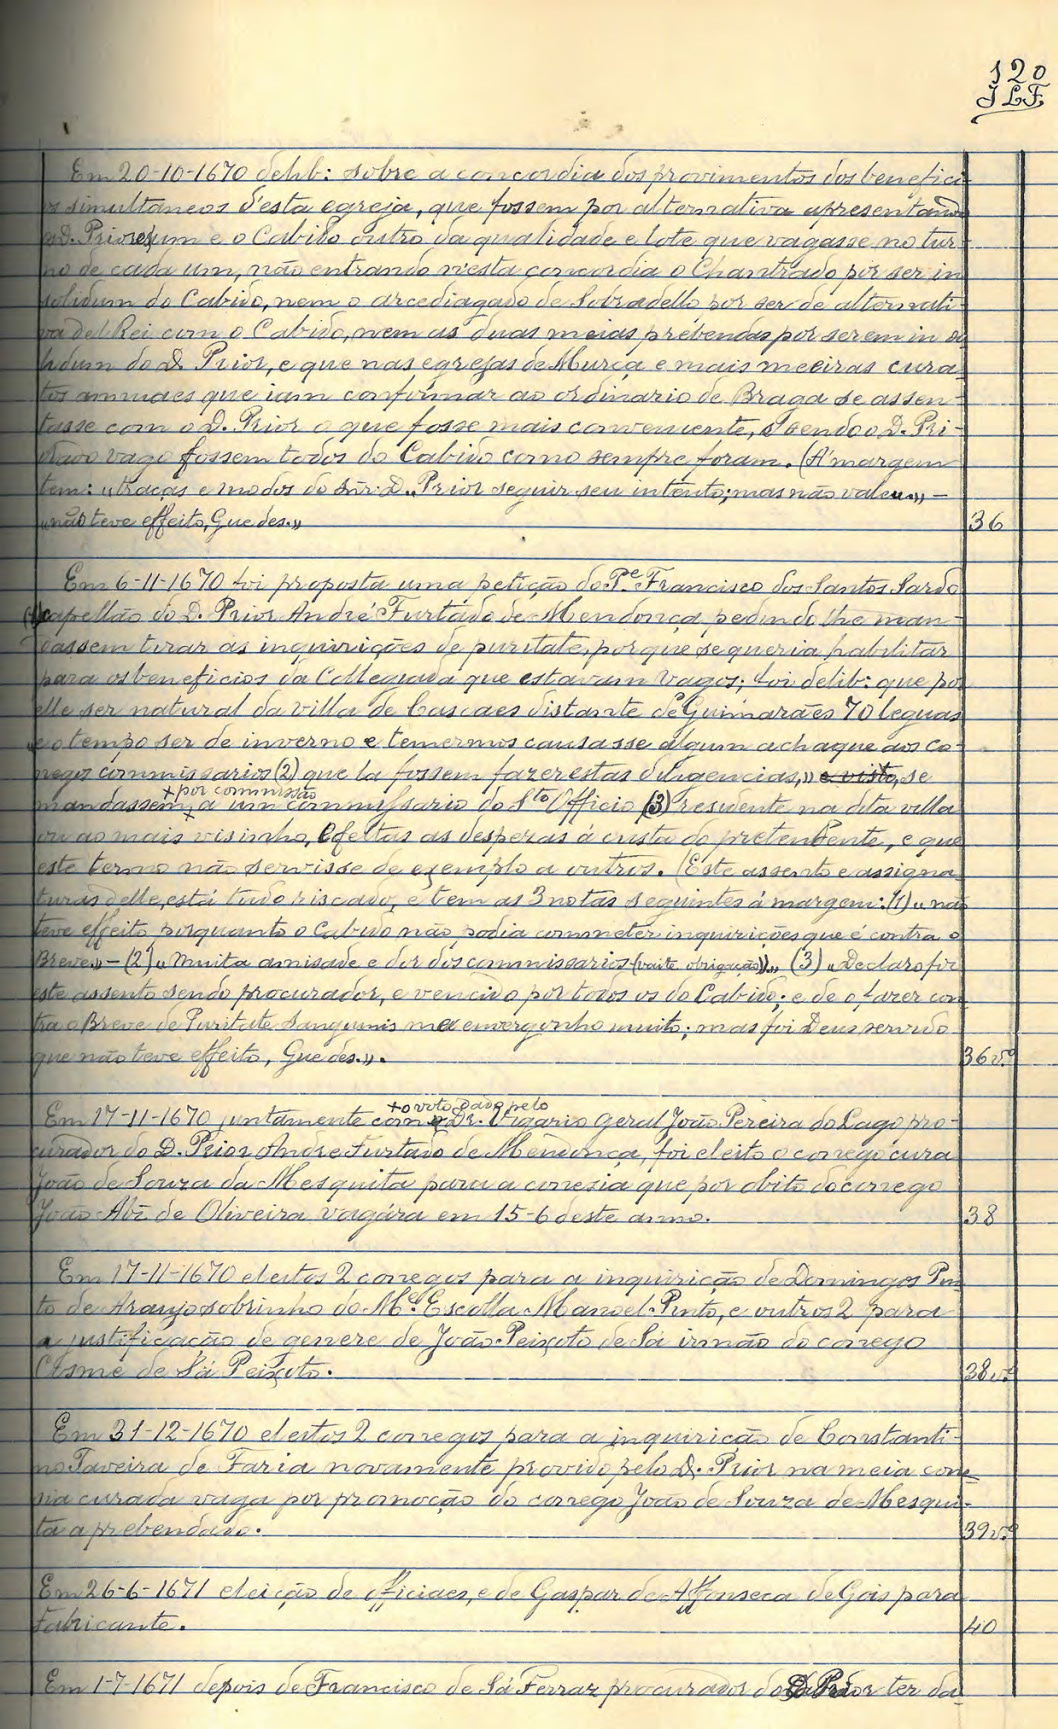 120
JLF.
Em 20-10-1670 delib: sobre a concordia dos provimentos dos benefici-
os simultaneos d'esta egreja, que fossem por alternativa apresentando
o D. Prior um e o Cabido outro da qualidade e lote que vagasse no tur-
no de cada um, não entrando n'esta concordia o Chantrado por ser in
solidum do Cabido, nem o arcediagado de Sobradello por ser de alternati-
va del Rei com o Cabido, nem as duas meias prebendas por serem in so
lidum do D. Prior, e que nas egrejas de Murça e mais meeiras cura-
tos annuaes que iam confirmar ao ordinario de Braga se assen-
tasse com o D. Prior o que fosse mais conveniente, e sendo o D. Pri-
orado vago fossem todos do Cabido como sempre foram. (Á margem
tem: «traças e modos do Snr. D. Prior seguir seu intento; mas não valeu» –
«não teve effeito, Guedes.»
36
Em 6-11-1670 foi proposta uma petição do Pe. Francisco dos Santos Sardo
(1) capellão do D. Prior André Furtado de Mendonça pedindo lhe man-
dassem tirar as inquirições de puritate, porque se queria habilitar
para os beneficios da Collegiada que estavam vagos; foi delib: que por
elle ser natural da villa de Cascaes distante de Guimarães 70 leguas
«e o tempo ser de inverno e temermos causasse algum achaque aos co-
negos commissarios (2) que la fossem fazer estas diligencias,» e visto, se
+ por commissão
mandassem, a um commissario do Sto Officio (3) residente na dita villa
ou ao mais visinho, e feitas as despezas á custa do pretendente, e que
este termo não servisse de exemplo a outros. (Este assento e assigna
turas delle, está tudo riscado, e tem as 3 notas seguintes á margem: (1) «não
teve effeito porquanto o Cabido não podia commeter inquirições que é contra o
Breve» – (2) «Muita amisade e dor dos commissarios obrigação)» (3) «Declaro fiz
este assento sendo procurador, e vencido por todos os do Cabido; e de o fazer con
tra o Breve de Puritate Sanguinis me envergonho muito; mas foi Deus servido
que não teve effeito, Guedes.».
36 v.º
+ o voto dado pelo
Em 17-11-1670 juntamente com o Dr. Vigario Geral João Pereira do Lago pro-
curador do D. Prior Andre Furtado de Mendonça, foi eleito o conego cura
João de Souza da Mesquita para a conesia que por obito do conego
João Alz. de Oliveira vagára em 15-6 deste anno.
38
Em 17-11-1670 eleitos 2 conegos para a inquirição de Domingos Pin
to de Araujo sobrinho do Me. Escolla Manoel Pinto, e outros 2 para
a justificação de genere de João Peixoto de Sá irmão do conego
Cosme de Sá Peixoto.
38 v.º
Em 31-12-1670 eleitos 2 conegos para a inquirição de Constanti-
no Taveira de Faria novamente provido pelo D. Prior na meia cone-
sia curada vaga por promoção do conego João de Souza de Mesqui-
ta a prebendado.
39 v.º
Em 26-6-1671 eleição de officiaes, e de Gaspar de Affonseca de Gois para
Fabricante.
40
Em 1-7-1671 depois de Francisco de Sá Ferraz procurador do D. Prior ter da-